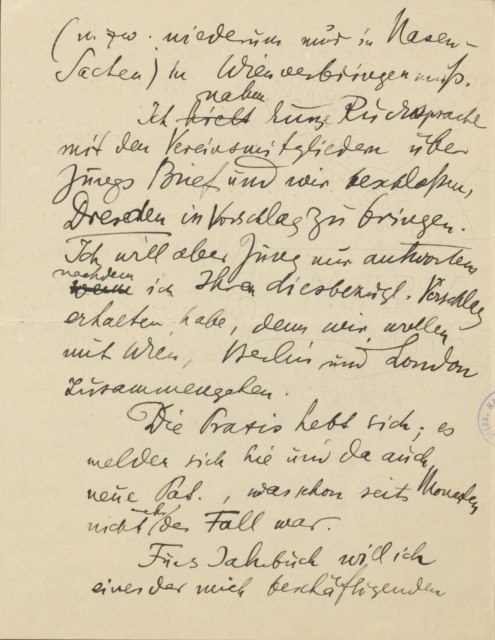 (u. zw. wiederum nur in Nasen-
Sachen) in Wien verbringen muß.
nahm
Ich hielt kurze Rücksprache
mit den Vereinsmitgliedern über
Jungs Brief und wir beschlossen,
Dresden in Vorschlag zu bringen.
Ich will aber Jung nur antworten
nachdem
wenn ich Ihren diesbezügl. Vorschlag
erhalten habe, denn wir wollen
mit Wien, Berlin und London
zusammengehen.
Die Praxis hebt sich; es
melden sich hie und da auch
neue Pat., was schon seit Monaten
nicht mehr der Fall war.
Fürs Jahrbuch will ich
eines der mich beschäftigenden